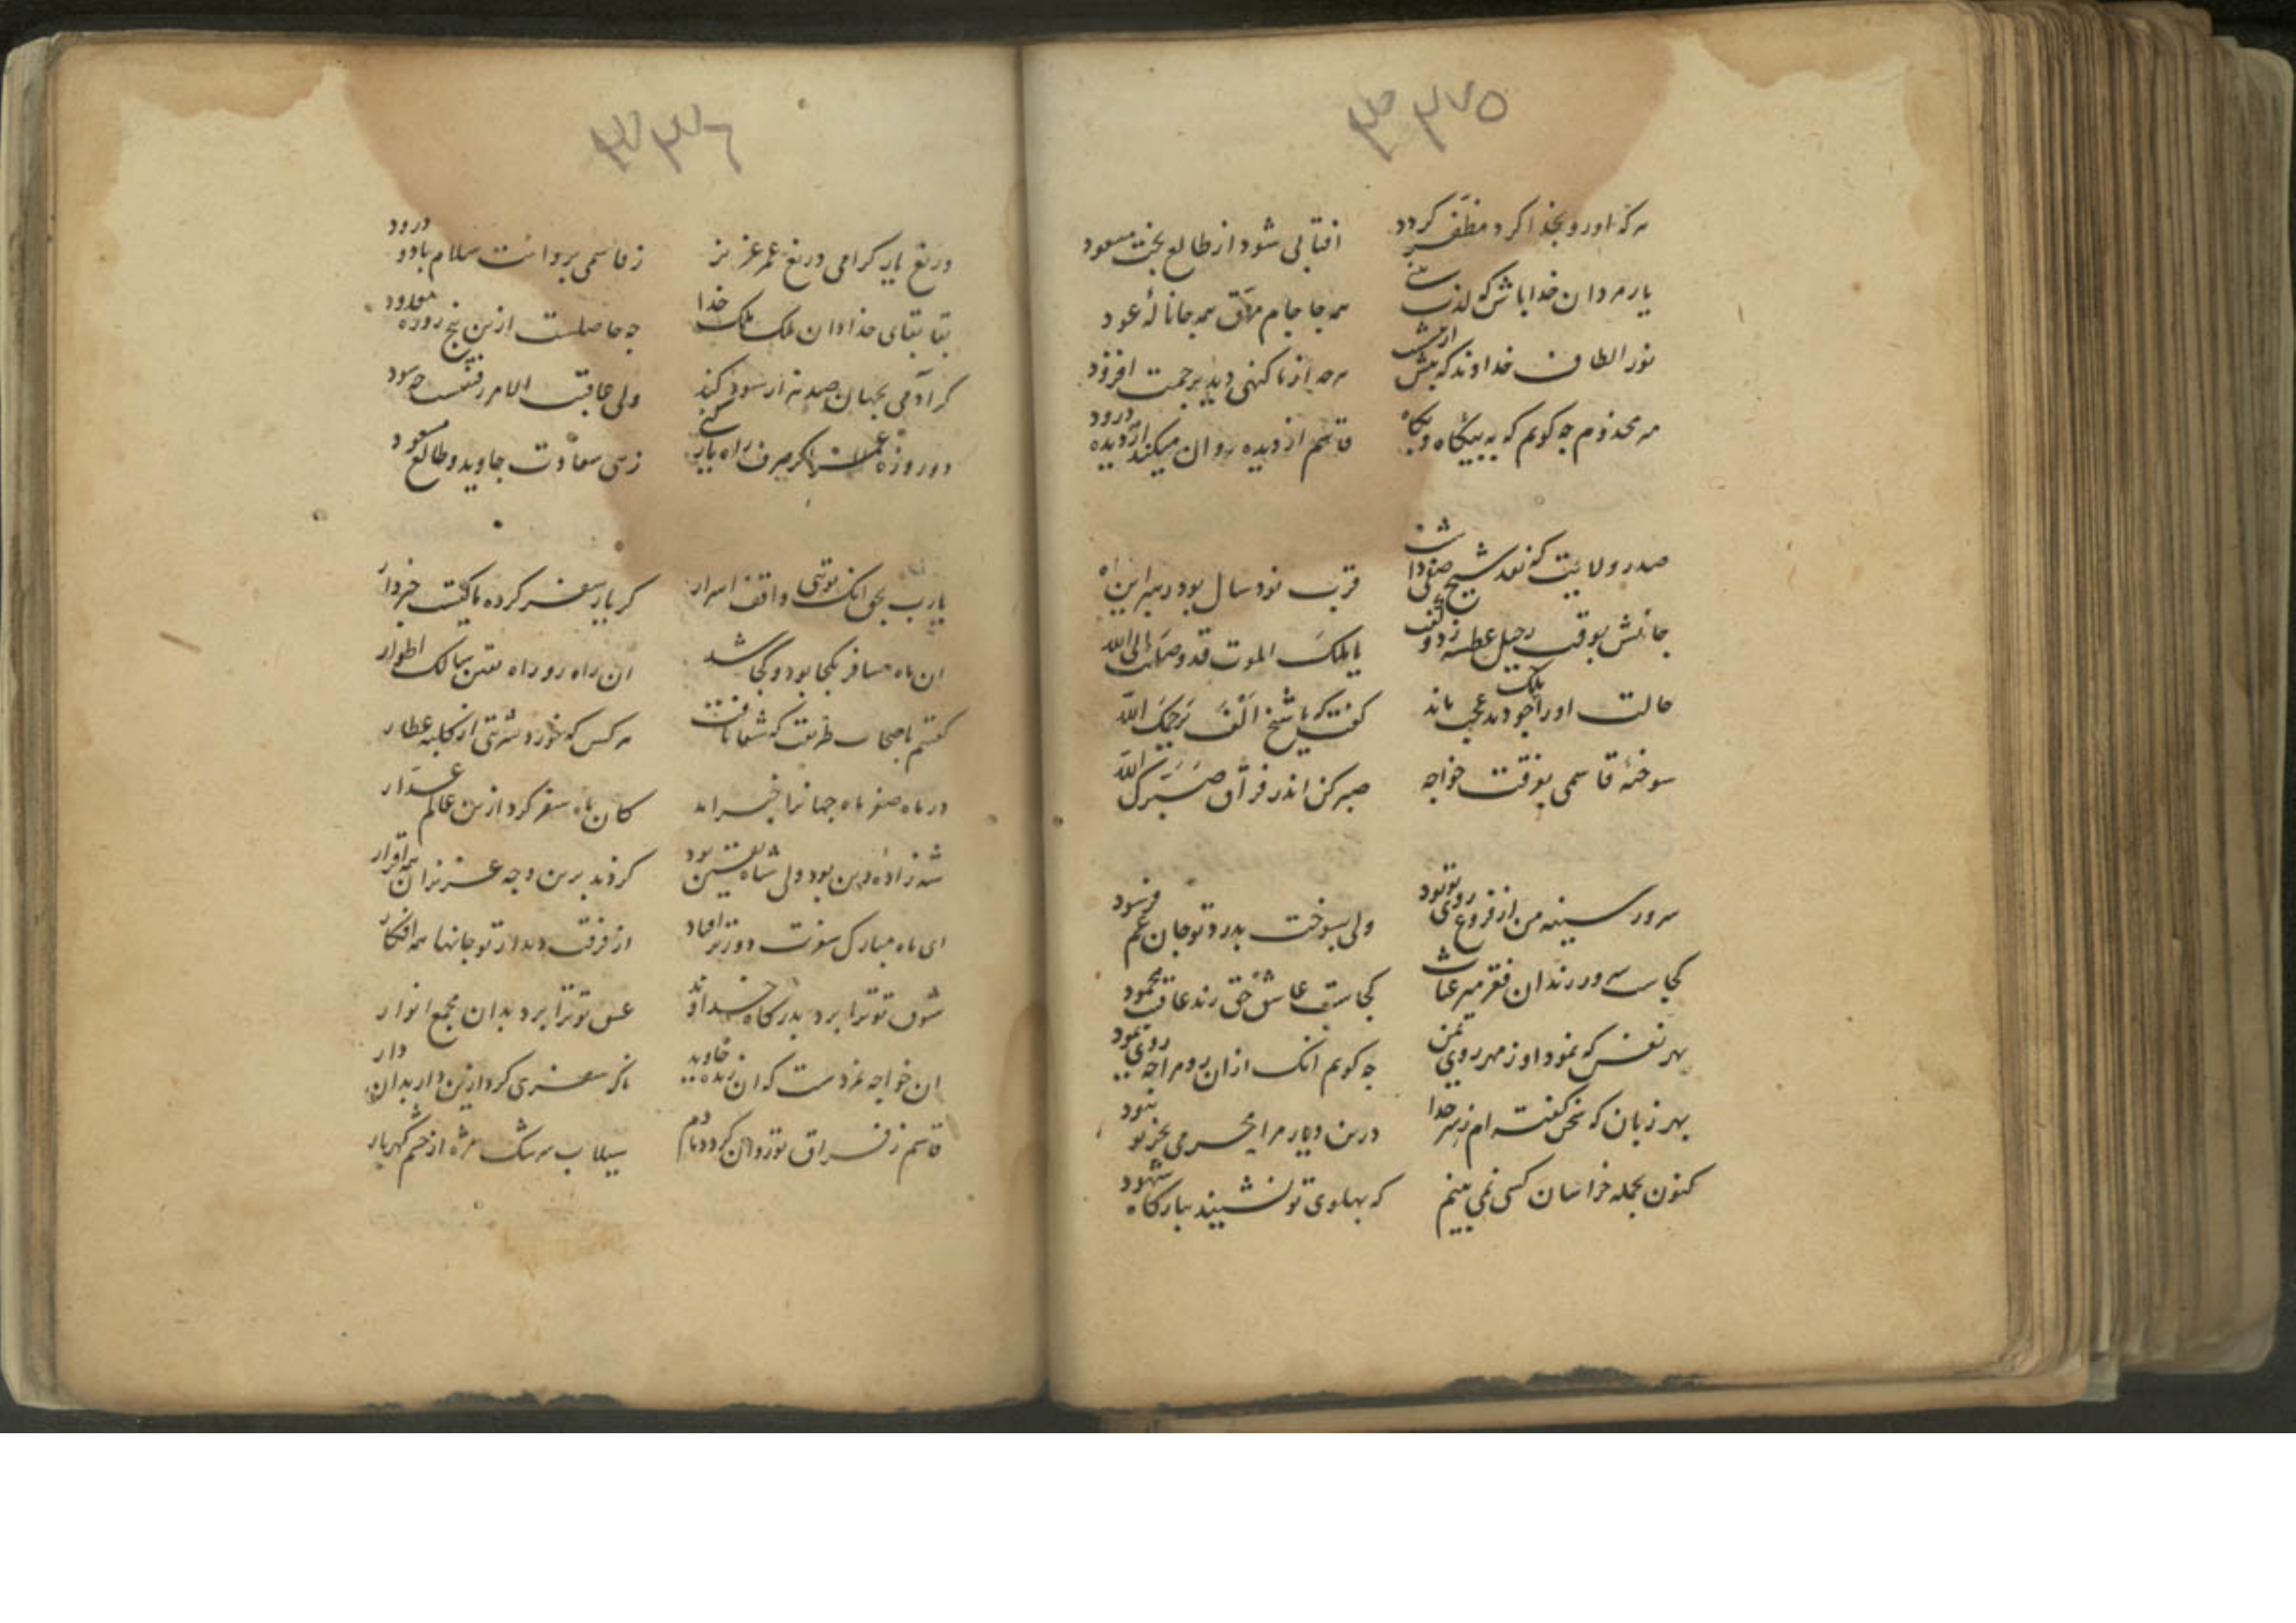 ۳۷۵
هر که او رو بخدا کرد مظفر گردد
افتابی شود از طالع بخت مسعود
یار مردان خدا باش که لذت
همه جا جام همه جا نالهٔ عود
نور الطاف خداوند که بیش از بیش
هر چه از ما کنهی دید برحمت افزود
من مخدوم چه کویم که به بیکاه و بکاه
قاسم از دیده روان میکند از دیده درود
صدر ولایت که نقد شیخ صفی داشت
قرب نود سال بود رهبر این راه
جانش بوقت رحیل عطسه زد و گفت
یا ملک الموت قد وصلت الی الله
حالت او را چو دید عجب ماند ملک
کفت که یا شیخ الف یرحمک الله
سوختهٔ قاسمی بفرقت خواجه
صبر کن اندر فراق صبرک الله
سرور سینه من از فروغ روی تو بود
ولی بسوخت بدرد تو جان غم فرسود
کجاست سرور رندان فقر میر غیاث
کجاست عاشق حق رند عاقبت محمود
بهر نفس که نمود او ز مهر روی بمن
چه کویم انک از ان رو مرا چه روی نمود
بهر زبان که سخن کفته ام ز سر خدا
درین دیار مرا محرمی بجز تو نبود
کنون بجمله خراسان کسی نمی بینم
که بهلوی تو نشیند ببارکاه شهود
۳۷۶
دریغ یار کرامی دریغ عمر عزیز
ز قاسمی بروانت سلام باد و درود
بقا بقای خدا دان ملک ملک خدا
چه حاصلست ازین پنج روزه معدود
کر آدمی بجهان صد هزار سود کند
ولی عاقبت الامر رفتنست چه سود
دو روزه عمر اکر صرف راه یار کنی
زهی سعادت جاوید و طالع مسعود
یارب بحق انک توئی واقف اسرار
کز یار سفر کرده ما کیست خبردار
ان ماه مسافر بکجا بود و کجا شد
ان راه رو راه یقین سالک اطوار
کفتم باصحاب طریقت که شفا یافت
هر کس که خورد شربتی از کلبه عطار
در ماه صفر ماه جهانرا خبر امد
کان ماه سفر کرد ازین عالم غدار
شه زاده دین بود ولی شاه یقین بود
کردند برین وجه عزیزان همه اقرار
ای ماه مبارک سفرت دورتر افتاد
از فرقت دیدار تو جانها همه افکار
شوق تو ترا برد بدرکاه خداوند
عشق تو ترا برد بدان مجمع انوار
ان خواجه نمردست که ان زنده جاوید
ناکه سفری کرد ازین دار بدان دار
قاسم ز فراق تو روان کرد دمادم
سیلاب سرشک مژه از چشم کهربار